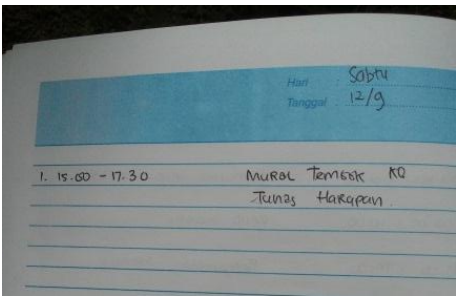 Hari : Sabtu
Tanggal : 12/9
1. 15.00 - 17.30 Mural Tembok KQ
Tunas Harapan.